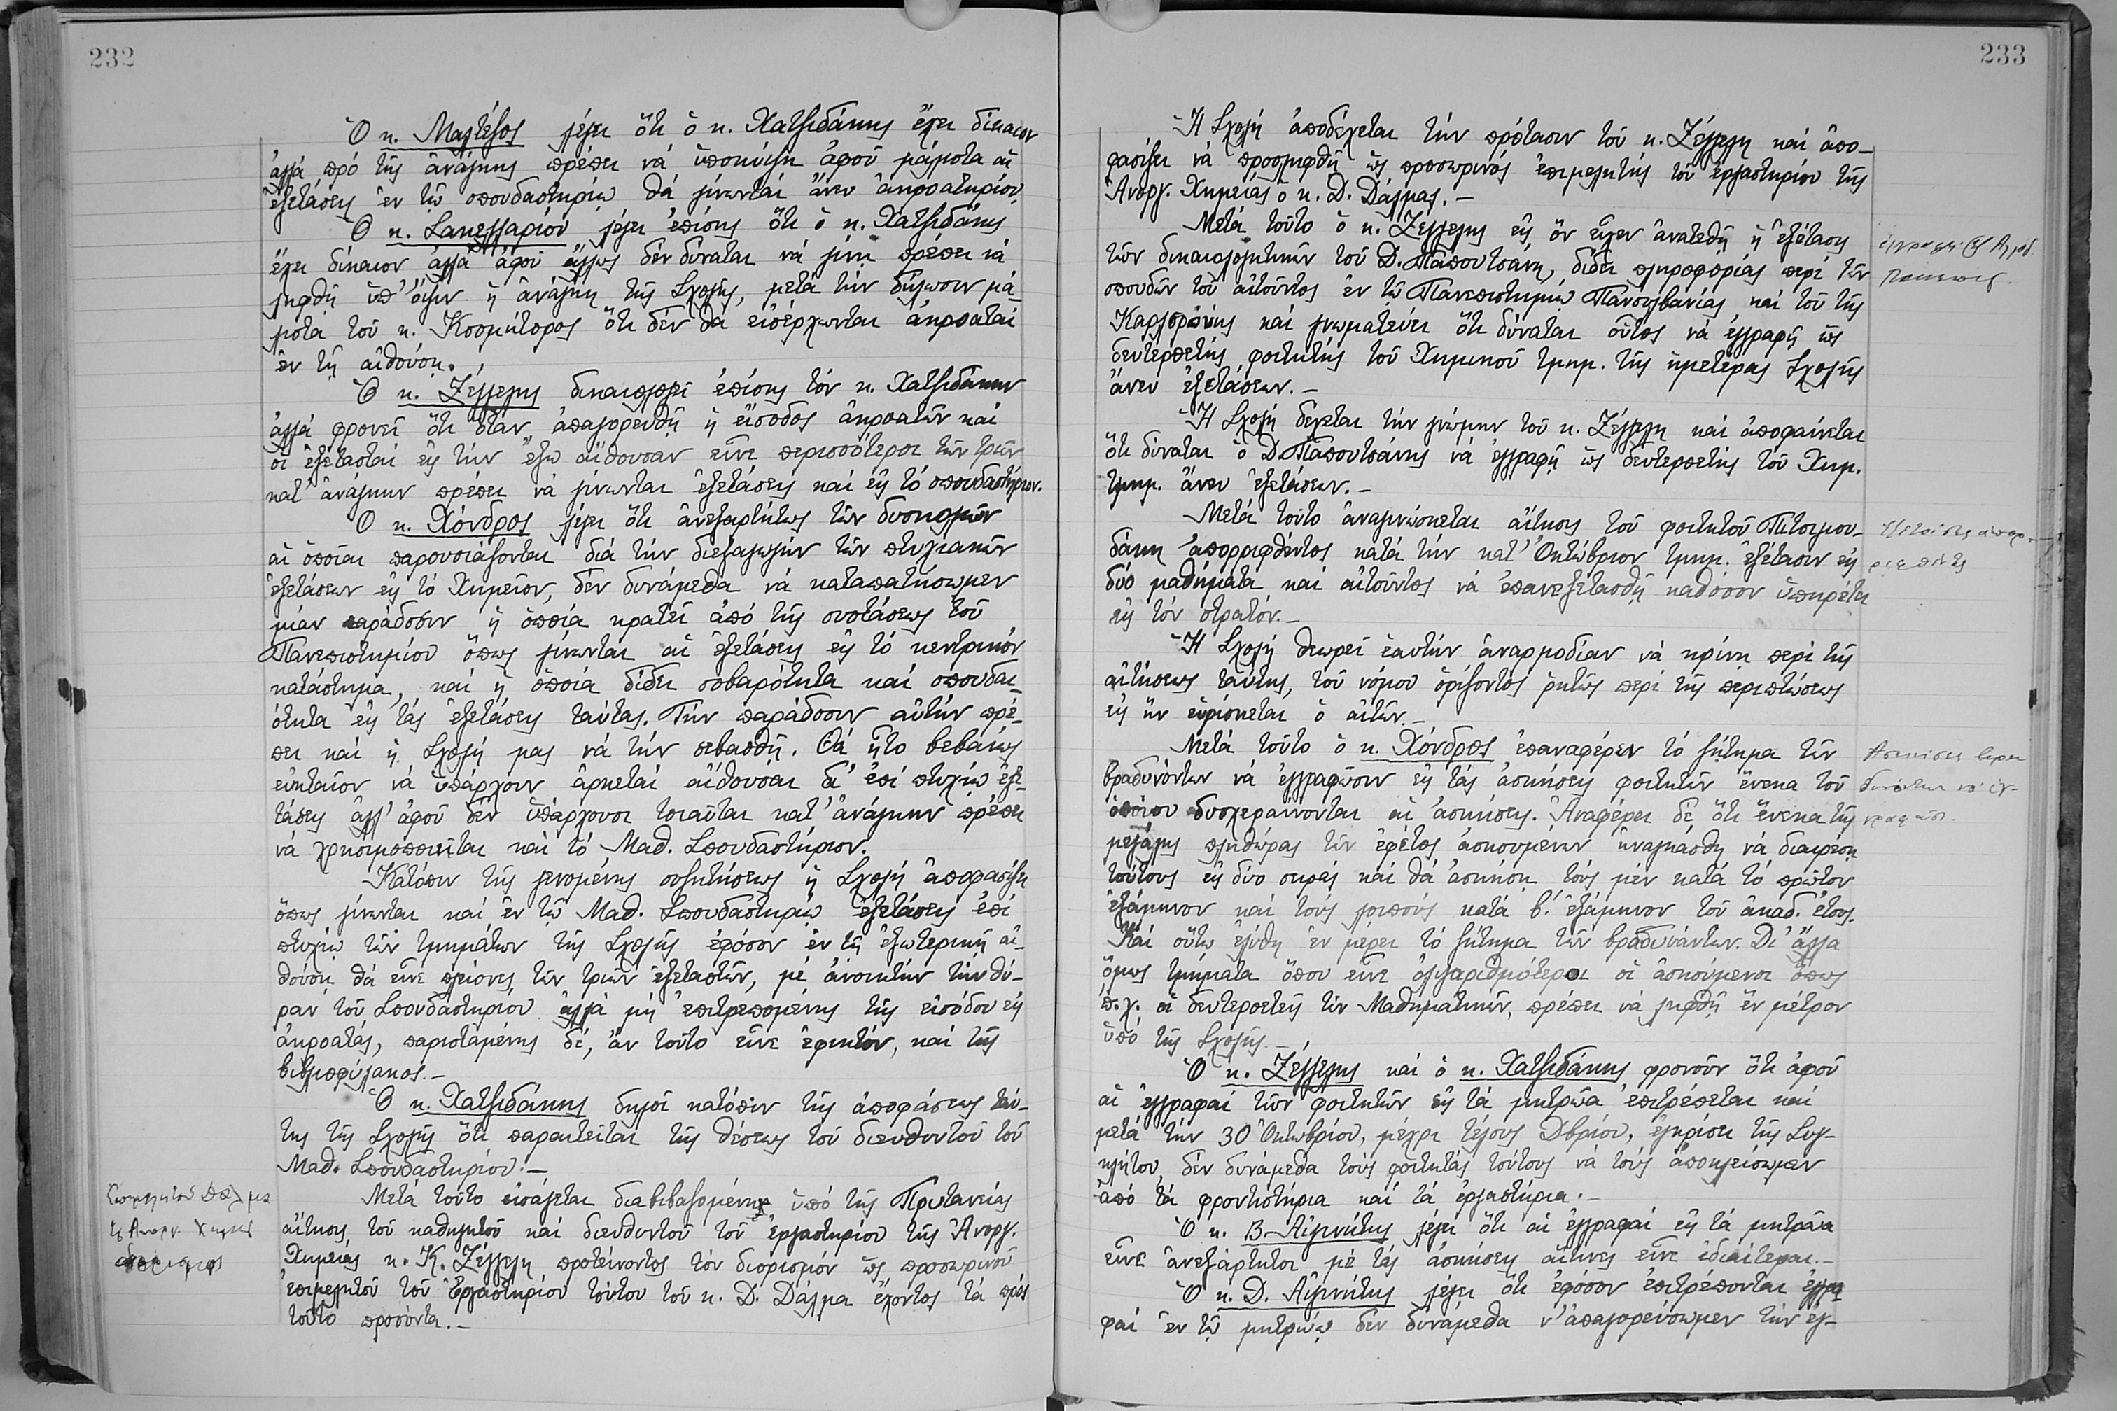 232
Ὁ κ. Μαλτέζος λέγει ὅτι ὁ κ. Χατζιδάκης ἔχει δίκαιον
ἀλλά πρό τῆς ἀνάγκης πρέπει νά ὑποκύψῃ ἀφοῦ μάλιστα αἱ
ἐξετάσεις ἐν τῷ σπουδαστηρίῳ θά γίνωνται ἄνευ ἀκροατηρίου.
Ὁ κ. Σακελλαρίου λέγει ἐπίσης ὅτι ὁ κ. Χατζιδάκης
ἔχει δίκαιον ἀλλά ἀφοῦ ἄλλως δέν δύναται νά γίνῃ πρέπει νά
ληφθῇ ὑπ' ὄψιν ἡ ἀνάγκη τῆς Σχολῆς, μετά τήν δήλωσιν μά-
λιστα τοῦ κ. Κοσμήτορος ὅτι δέν θά εἰσέρχωνται ἀκροαταί
ἐν τῇ αἰθούσῃ.
Ὁ κ. Ζέγγελης δικαιολογεῖ ἐπίσης τόν κ. Χατζιδάκην
ἀλλά φρονεῖ ὅτι ὅταν ἀπαγορευθῇ ἡ εἴσοδος ἀκροατῶν καί
οἱ ἐξετασταί εἰς τήν ἔξω αἴθουσαν εἶνε περισσότεροι τῶν τριῶν
κατ' ἀνάγκην πρέπει νά γίνωνται ἐξετάσεις καί εἰς τό σπουδαστήριον.
Ὁ κ. Χόνδρος λέγει ὅτι ἀνεξαρτήτως τῶν δυσκολιῶν
αἱ ὁποῖαι παρουσιάζονται διά τήν διεξαγωγήν τῶν πτυχιακῶν
ἐξετάσεων εἰς τό Χημεῖον, δέν δυνάμεθα νά καταπατήσωμεν
μίαν παράδοσιν ἡ ὁποία κρατεῖ ἀπό τῆς συστάσεως τοῦ
Πανεπιστημίου ὅπως γίνωνται αἱ ἐξετάσεις εἰς τό κεντρικόν
κατάστημα, καί ἡ ὁποία δίδει σοβαρότητα καί σπουδαι-
ότητα εἰς τάς ἐξετάσεις ταύτας. Τήν παράδοσιν αὐτήν πρέ-
πει καί ἡ Σχολή μας νά τήν σεβασθῇ. Θά ἦτο βεβαίως
εὐκταῖον νά ὑπάρχουν ἀρκεταί αἴθουσαι δι' ἐπί πτυχίῳ ἐξε-
τάσεις ἀλλ' ἀφοῦ δέν ὑπάρχουσι τοιαῦται κατ' ἀνάγκην πρέπει
νά χρησιμοποιεῖται καί τό Μαθ. Σπουδαστήριον.
Κατόπιν τῆς γενομένης συζητήσεως ἡ Σχολή ἀποφασίζει
ὅπως γίνωνται καί ἐν τῷ Μαθ. Σπουδαστηρίῳ ἐξετάσεις ἐπί
πτυχίῳ τῶν τμημάτων τῆς Σχολῆς ἐφόσον ἐν τῇ ἐξωτερικῇ αἰ-
θούσῃ θά εἶνε πλείονες τῶν τριῶν ἐξεταστῶν, μέ ἀνοικτήν τήν θύ-
ραν τοῦ Σπουδαστηρίου ἀλλά μή ἐπιτρεπομένης τῆς εἰσόδου εἰς
ἀκροατάς, παρισταμένης δέ, ἄν τοῦτο εἶνε ἐφικτόν, καί τῆς
βιβλιοφύλακος.-
Ὁ κ. Χατζιδάκης δηλοῖ κατόπιν τῆς ἀποφάσεως ταύ-
της τῆς Σχολῆς ὅτι παραιτεῖται τῆς θέσεως τοῦ διευθυντοῦ τοῦ
Μαθ. Σπουδαστηρίου.-
Μετά τοῦτο εἰσάγεται διαβιβαζομένη ὑπό τῆς Πρυτανείας
αἴτησις τοῦ καθηγητοῦ καί διευθυντοῦ τοῦ ἐργαστηρίου τῆς Ἀνοργ.
Χημείας κ. Κ. Ζέγγελη προτείνοντος τόν διορισμόν ὡς προσωρινοῦ
ἐπιμελητοῦ τοῦ Ἐργαστηρίου τούτου τοῦ κ. Δ. Δάλμα ἔχοντος τά πρός
τοῦτο προσόντα.-
Ἐπιμελητοῦ Δάλμα
τῆς Ἀνοργ. Χημείας
233
Ἡ Σχολή ἀποδέχεται τήν πρότασιν τοῦ κ. Ζέγγελη καί ἀπο-
φασίζει νά προσληφθῇ ὡς προσωρινός ἐπιμελητής τοῦ ἐργαστηρίου τῆς
Ἀνοργ. Χημείας ὁ κ. Δ. Δάλμας.-
Μετά τοῦτο ὁ κ. Ζέγγελης εἰς ὅν εἶχεν ἀνατεθῆ ἡ ἐξέτασις
τῶν δικαιολογητικῶν τοῦ Δ. Παπουτσάνη, δίδει πληροφορίας περί τῶν
σπουδῶν τοῦ αἰτοῦντος ἐν τῷ Πανεπιστημίῳ Πανσυλβανίας καί τοῦ τῆς
Καρλσρούης καί γνωματεύει ὅτι δύναται οὗτος νά ἐγγραφῇ ὡς
δευτεροετής φοιτητής τοῦ Χημικοῦ τμημ. τῆς ἡμετέρας Σχολῆς
ἄνευ ἐξετάσεων.-
Ἡ Σχολή δέχεται τήν γνώμην τοῦ κ. Ζέγγελη καί ἀποφαίνεται
ὅτι δύναται ὁ Δ. Παπουτσάνης νά ἐγγραφῇ ὡς δευτεροετής τοῦ Χημ.
τμημ. ἄνευ ἐξετάσεων.-
Μετά τοῦτο ἀναγινώσκεται αἴτησις τοῦ φοιτητοῦ Πιτσιμου-
δάκη ἀπορριφθέντος κατά τήν κατ' Ὀκτώβριον τμημ. ἐξέτασιν εἰς
δύο μαθήματα καί αἰτοῦντος νά ἐπανεξετασθῇ καθόσον ὑπηρετεῖ
εἰς τόν στρατόν.-
Ἡ Σχολή θεωρεῖ ἑαυτήν ἀναρμοδίαν νά κρίνῃ περί τῆς
αἰτήσεως ταύτης, τοῦ νόμου ὁρίζοντος ρητῶς περί τῆς περιπτώσεως
εἰς ἥν εὑρίσκεται ὁ αἰτῶν.-
Μετά τοῦτο ὁ κ. Χόνδρος ἐπαναφέρει τό ζήτημα τῶν
βραδυνόντων νά ἐγγραφῶσιν εἰς τάς ἀσκήσεις φοιτητῶν ἕνεκα τοῦ
ὁποίου δυσχεραίνονται αἱ ἀσκήσεις. Ἀναφέρει δέ ὅτι ἕνεκα τῆς
μεγάλης πληθώρας τῶν ἐφέτος ἀσκουμένων ἠναγκάσθη νά διαιρέσῃ
τούτους εἰς δύο σειράς καί θά ἀσκήσῃ τούς μέν κατά τό πρῶτον
ἑξάμηνον καί τούς λοιπούς κατά β. ἑξάμηνον τοῦ ἀκαδ. ἔτους.
Καί οὕτω ἐλύθη ἐν μέρει τό ζήτημα τῶν βραδυνάντων. Δι' ἄλλα
ὅμως τμήματα ὅπου εἶνε ὀλιγαριθμότεροι οἱ ἀσκούμενοι ὅπως
π.χ. οἱ δευτεροετεῖς τῶν Μαθηματικῶν, πρέπει νά ληφθῇ ἕν μέτρον
ὑπό τῆς Σχολῆς.-
Ὁ κ. Ζέγγελης καί ὁ κ. Χατζιδάκης φρονοῦν ὅτι ἀφοῦ
αἱ ἐγγραφαί τῶν φοιτητῶν εἰς τά μητρῶα ἐπιτρέπεται καί
μετά τήν 30 Ὀκτωβρίου, μέχρι τέλους Δβρίου, ἐγκρίσει τῆς Συγ-
κλήτου, δέν δυνάμεθα τούς φοιτητάς τούτους νά τούς ἀποκλείσωμεν
ἀπό τά φροντιστήρια καί τά ἐργαστήρια.-
Ὁ κ. Β. Αἰγινήτης λέγει ὅτι αἱ ἐγγραφαί εἰς τά μητρῶα
εἶνε ἀνεξάρτητοι μέ τάς ἀσκήσεις αἵτινες εἶνε ἰδιαίτεραι.-
Ὁ κ. Δ. Αἰγινήτης λέγει ὅτι ἐφόσον ἐπιτρέπονται ἐγγρα
φαί ἐν τῷ μητρώῳ δέν δυνάμεθα ν' ἀπαγορεύσωμεν τήν ἐγ-